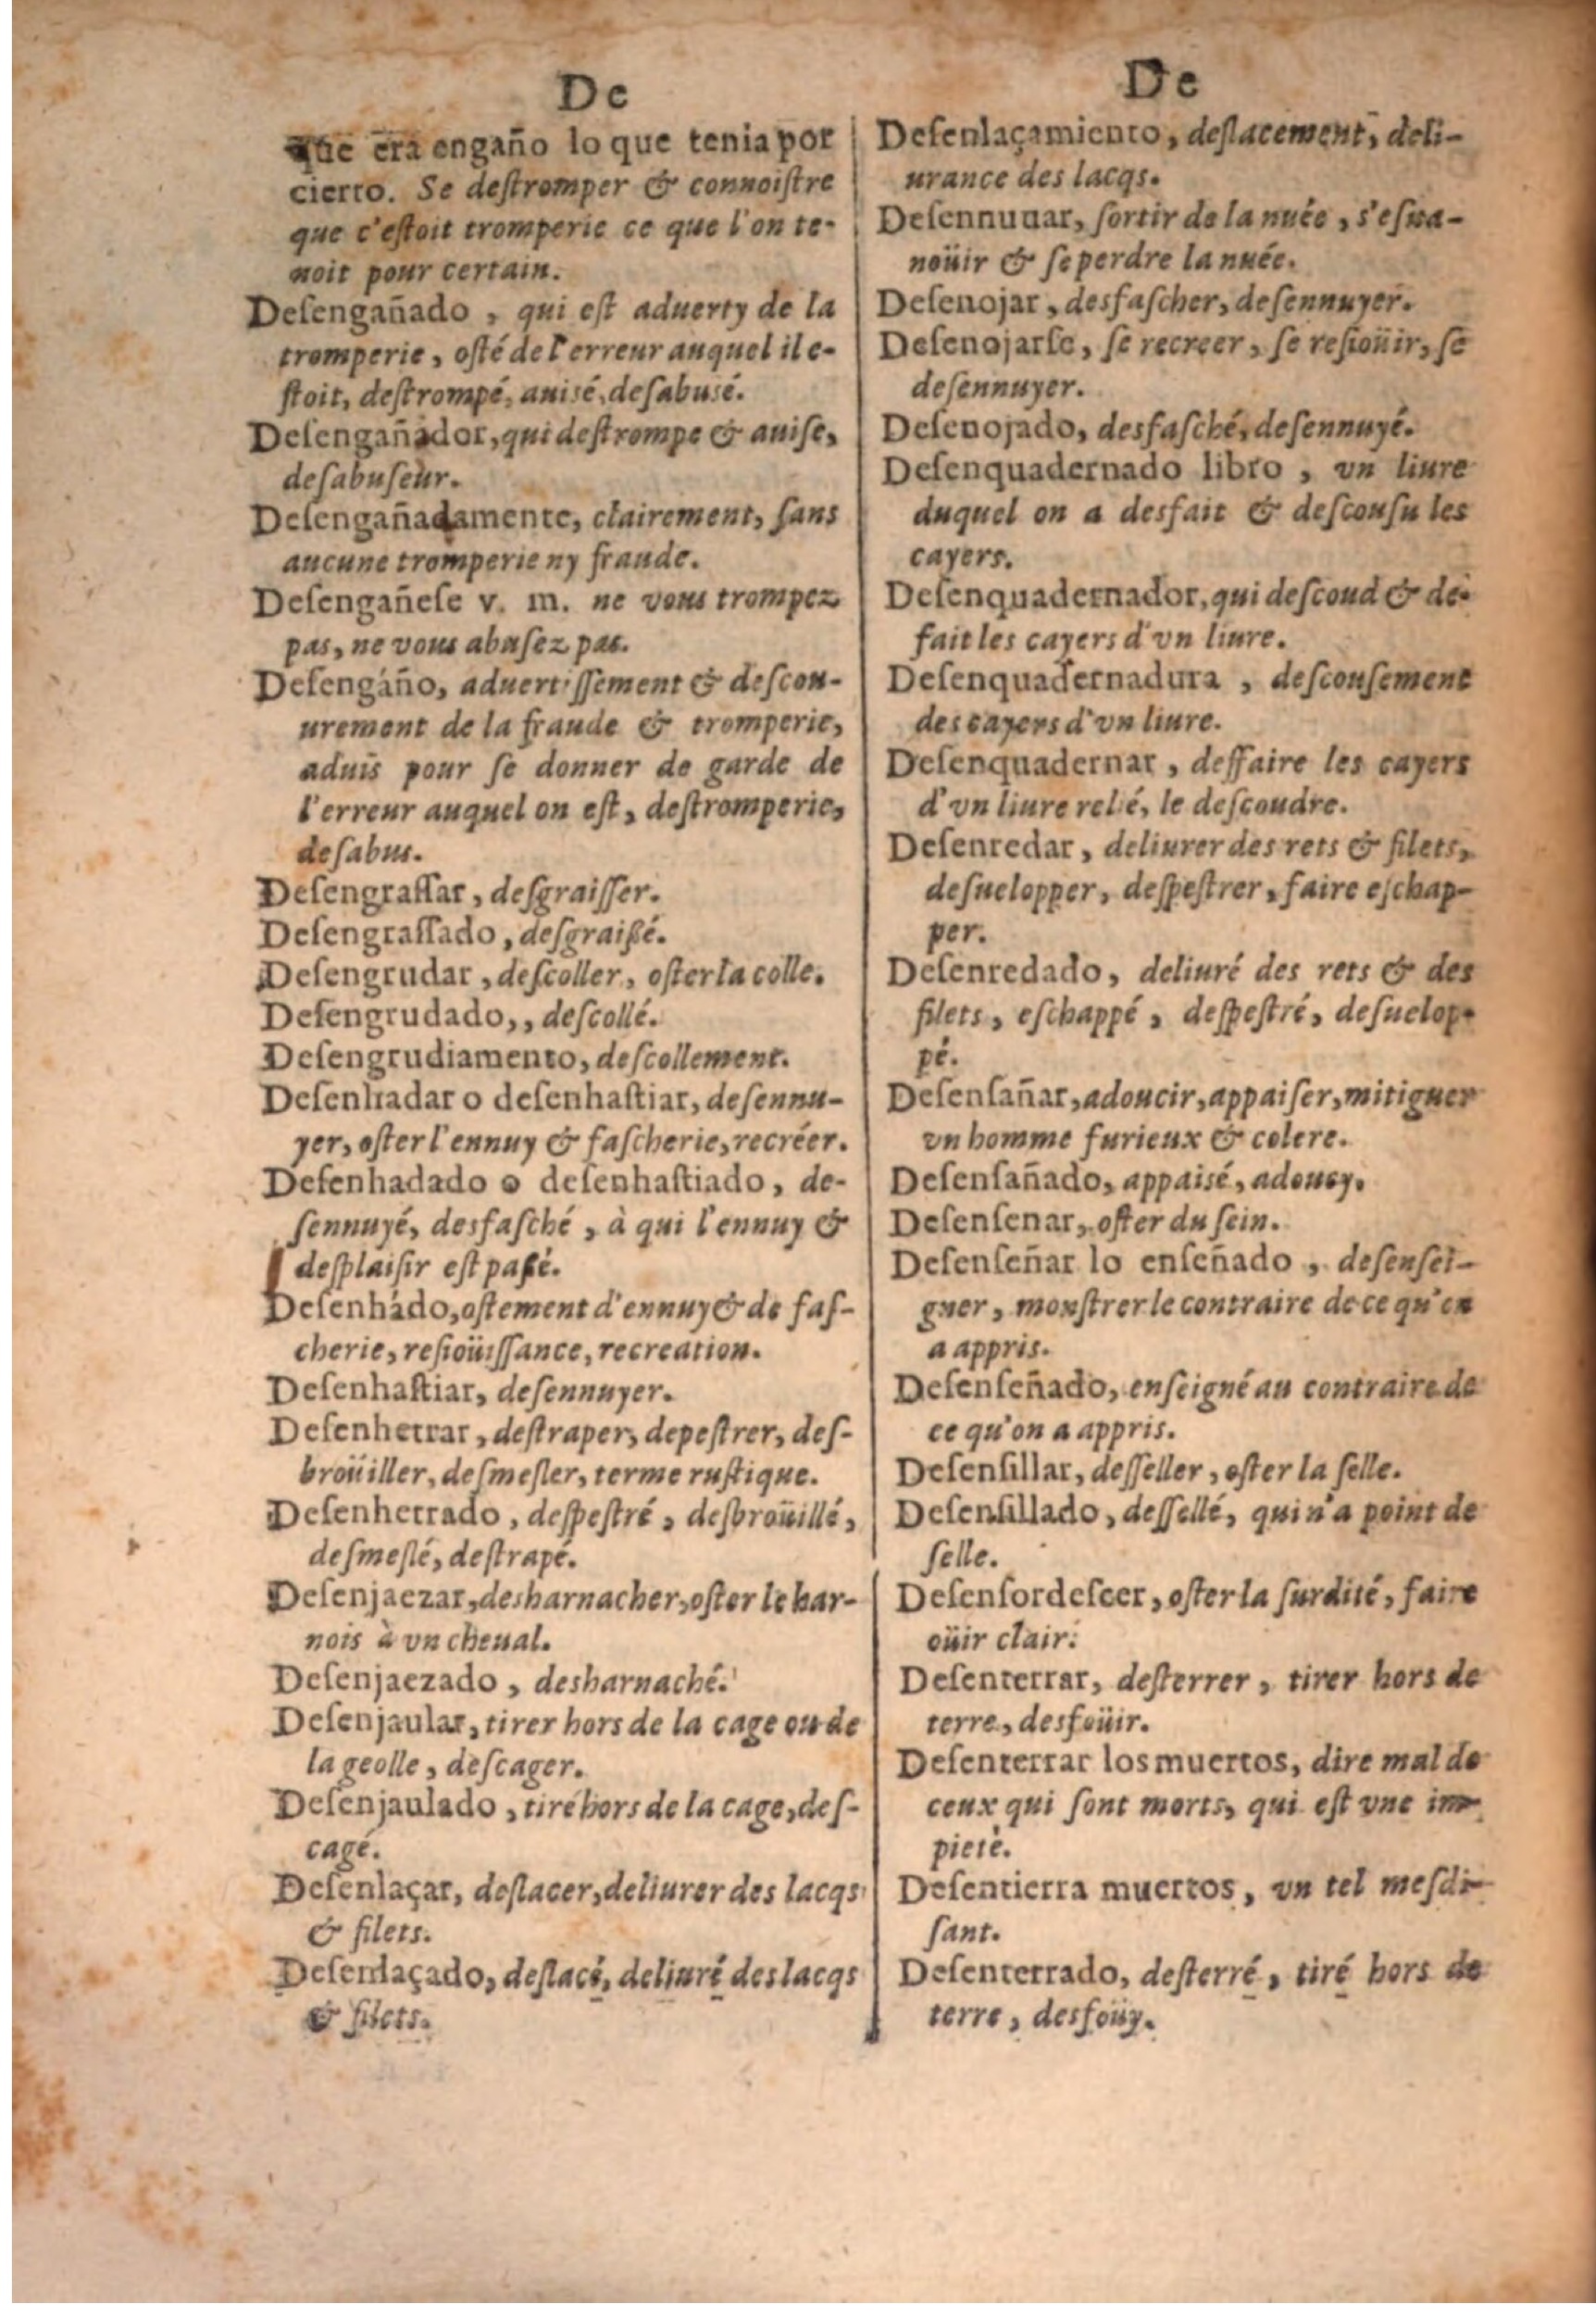 De
que era engaño lo que tenia por
cierto. Se deſtromper & connoiſtre
que c'eſtoit tromperie ce que l'on te-
noit pour certain.
Deſengañado , qui eſt aduerty de la
tromperie, oſté de l'erreur auquel il e-
ſtoit, deſtrompé, auisé, deſabusé.
Deſengañador, qui deſtrompe & auiſe,
deſabuſeur.
Deſengañadamente, clairement, ſans
aucune tromperie ny fraude.
Deſengañeſe v. m. ne vous trompez
pas, ne vous abuſez pas.
Deſengáño, aduertiſſement & deſcou-
urement de la fraude & tromperie,
aduis pour ſe donner de garde de
l'erreur auquel on eſt, deſtromperie,
deſabus.
Deſengraſſar, deſgraiſſer.
Deſengraſſado, deſgraißé.
Deſengrudar, deſcoller, oſter la colle.
Deſengrudado,, deſcollé.
Deſengrudiamento, deſcollement.
Deſenhadar o deſenhaſtiar, deſennu-
yer, oſter l'ennuy & faſcherie, recréer.
Deſenhadado o deſenhaſtiado, de-
ſennuyé, desfaſché, à qui l'ennuy &
deſplaiſir eſt paßé.
Deſenhádo, oſtement d'ennuy & de faſ-
cherie, reſioüiſſance, recreation.
Deſenhaſtiar, deſennuyer.
Deſenhetrar, deſtraper, depeſtrer, deſ-
broüiller, deſmeſler, terme ruſtique.
Deſenhetrado, deſpeſtré, desbroüillé,
deſmeſlé, deſtrapé.
Deſenjaezar, desharnacher, oſter le har-
nois à vn cheual.
Deſenjaezado, desharnaché.
Deſenjaular, tirer hors de la cage ou de
la geolle, deſcager.
Deſenjaulado, tiré hors de la cage, deſ-
cagé.
Deſenlaçar, deſlacer, deliurer des lacqs
& filets.
Deſenlaçado, deſlacé, deliuré des lacqs
& filets.
De
Deſenlaçamiento, deſlacement, deli-
urance des lacqs.
Deſennuuar, ſortir de la nuée, s'eſua-
noüir & ſe perdre la nuée.
Deſenojar, desfaſcher, deſennuyer.
Deſenojarſe, ſe recreer, ſe reſioüir, ſe
deſennuyer.
Deſenojado, desfaſché, deſennuyé.
Deſenquadernado libro, vn liure
duquel on a desfait & deſcouſu les
cayers.
Deſenquadernador, qui deſcoud & de-
fait les cayers d'vn liure.
Deſenquadernadura, deſcouſement
des cayers d'vn liure.
Deſenquadernar, deffaire les cayers
d'vn liure relié, le deſcoudre.
Deſenredar, deliurer des rets & filets,
deſuelopper, deſpeſtrer, faire eſchap-
per.
Deſenredado, deliuré des rets & des
filets, eſchappé, deſpeſtré, deſuelop-
pé.
Deſenſañar, adoucir, appaiſer, mitiguer
vn homme furieux & colere.
Deſenſañado, appaisé, adoucy.
Deſenſenar, oſter du ſein.
Deſenſeñar lo enſeñado, deſenſei-
gner, monſtrer le contraire de ce qu'on
a appris.
Deſenſeñado, enſeigné au contraire de
ce qu'on a appris.
Deſenſillar, deſſeller, oſter la ſelle.
Deſenſillado, deſſellé, qui n'a point de
ſelle.
Deſenſordeſcer, oſter la ſurdité, faire
oüir clair.
Deſenterrar, deſterrer, tirer hors de
terre, desfoüir.
Deſenterrar los muertos, dire mal de
ceux qui ſont morts, qui eſt vne im-
pieté.
Deſentierra muertos, vn tel meſdi-
ſant.
Deſenterrado, deſterré, tiré hors de
terre, desfoüy.